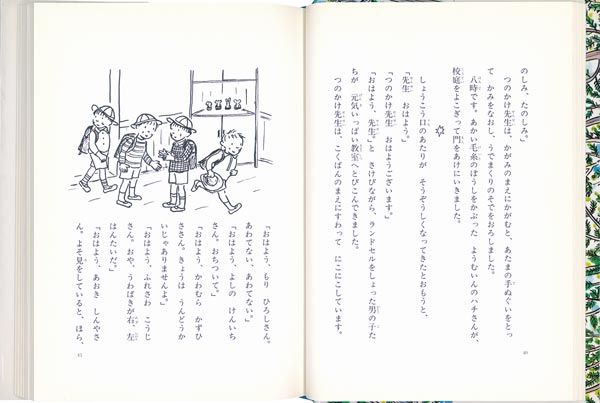 のしみ、たのしみ。」
つのかけ先生は、かがみのまえにかがむと、あたまの手ぬぐいをとっ
て かみをなおし、うでまくりのそでをおろしました。
八時です。あかい毛糸のぼうしをかぶった ようむいんのハチさんが、
校庭をよこぎって門をあけにいきました。
しょうこう口のあたりが そうぞうしくなってきたとおもうと、
「先生 おはよう。」
「つのかけ先生 おはようございます。」
「おはよう、先生。」と さけびながら、ランドセルをしょった男の子た
ちが、元気いっぱい教室へとびこんできました。
つのかけ先生は、こくばんのまえにすわって にこにこしています。
40
「おはよう、もり ひろしさん。
あわてない、あわてない。」
「おはよう、よしの けんいち
さん。おちついて。」
「おはよう、かわむら かずひ
ささん。きょうは うんどうか
いじゃありませんよ。」
「おはよう、ふれさわ こうじ
さん。おや、うわばきが右 左
はんたいだ。」
「おはよう、あおき しんやさ
ん。よそ見をしていると、ほら、
41